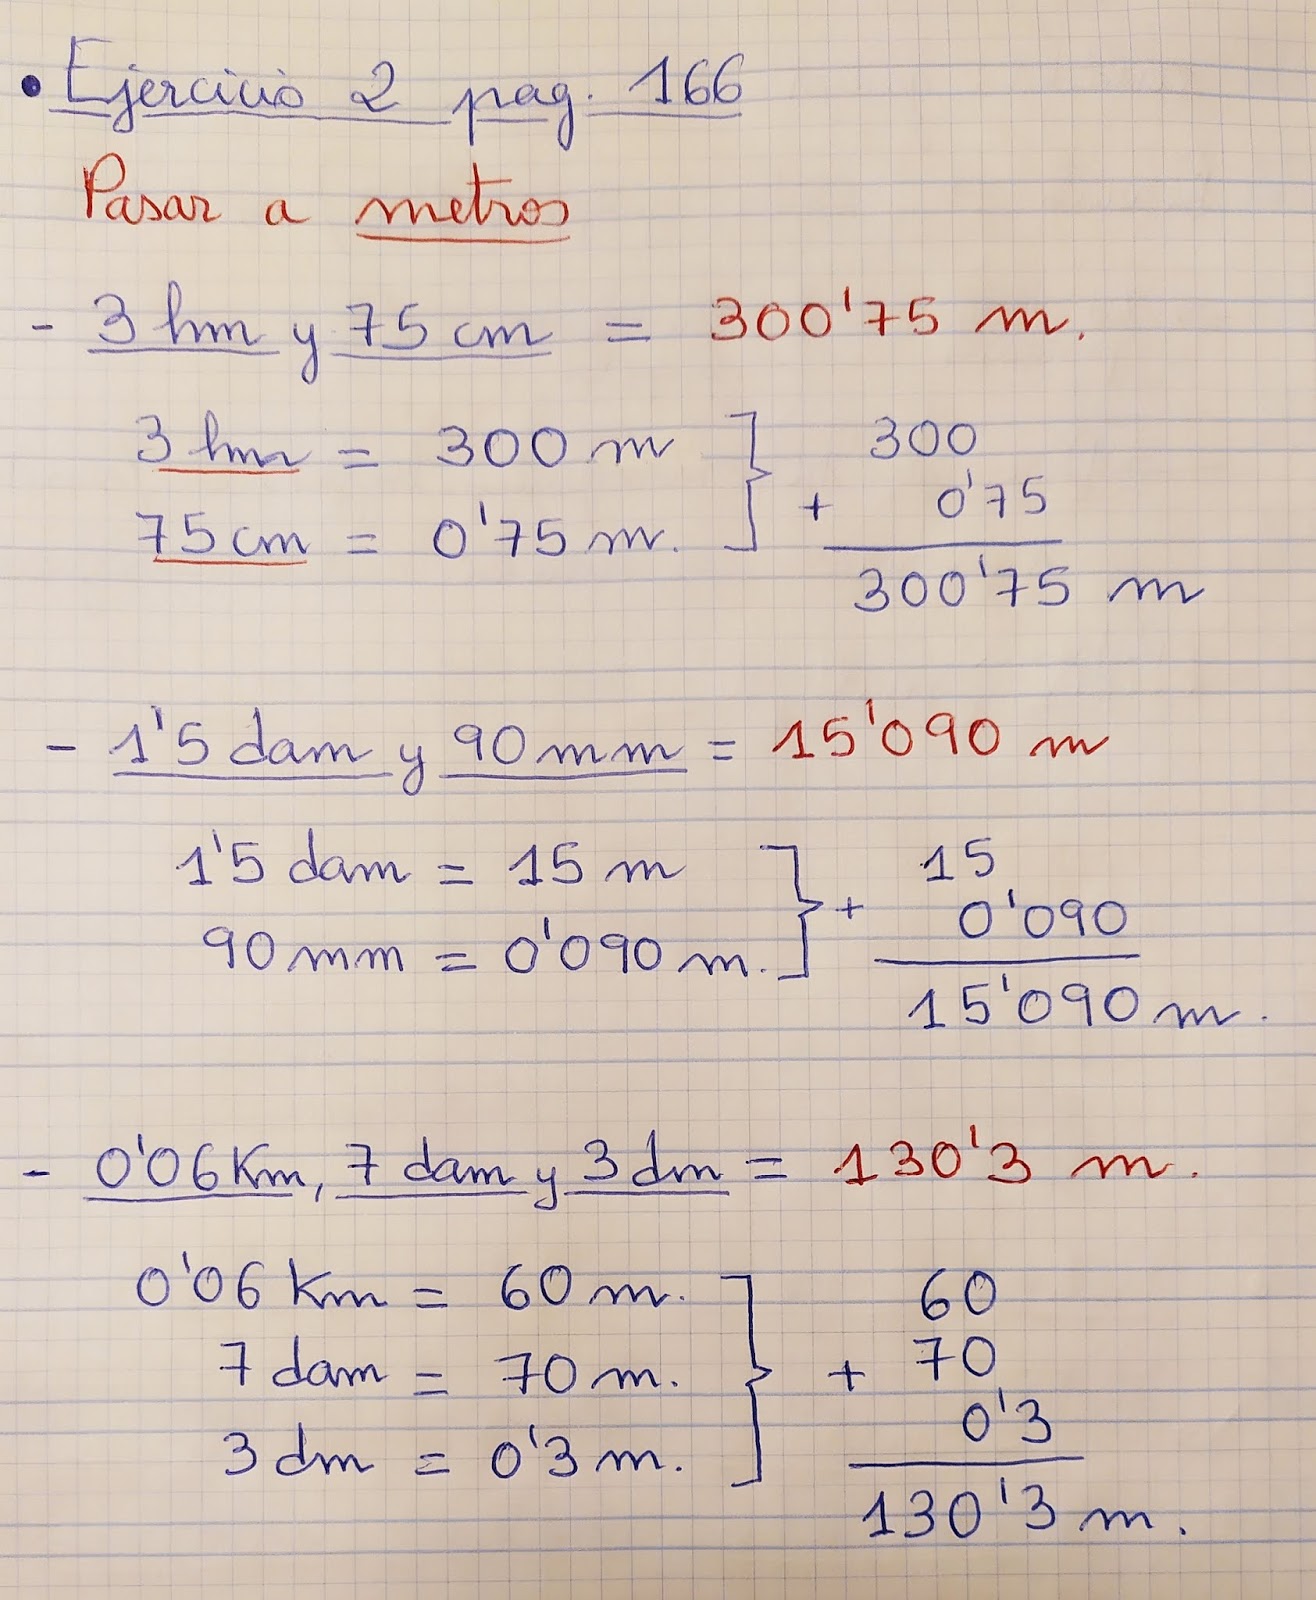 • Ejercicio 2 pag. 166
Pasar a metros
- 3 hm y 75 cm = 300'75 m.
3 hm = 300 m
75 cm = 0'75 m.
300
+ 0'75
300'75 m
- 1'5 dam y 90 mm = 15'090 m
1'5 dam = 15 m
90 mm = 0'090 m.
15
+ 0'090
15'090 m.
- 0'06 Km, 7 dam y 3 dm = 130'3 m.
0'06 Km = 60 m.
7 dam = 70 m.
3 dm = 0'3 m.
60
+ 70
0'3
130'3 m.